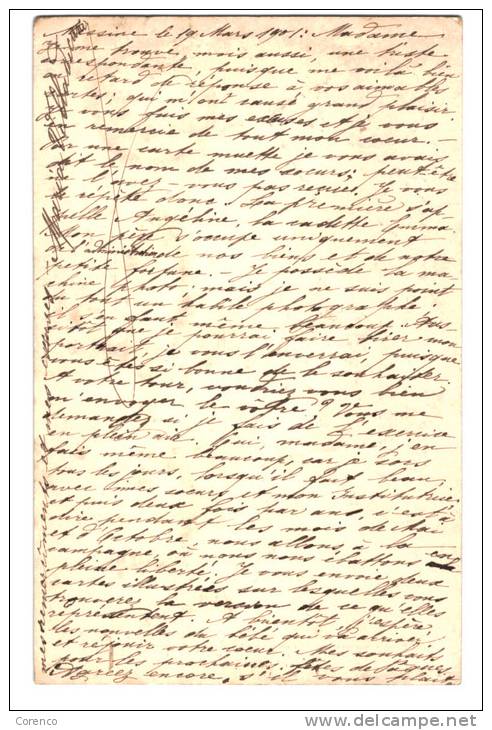 Messine le 19 Mars 1901: Madame
Je me trouve, moi aussi, une triste
correspondante, puisque me voilà bien
en retard de réponse à vos aimables
cartes, qui m'ont causé grand plaisir
Je vous fais mes excuses et je vous
remercie de tout mon coeur.
Sur une carte muette je vous avais
écrit le nom de mes soeurs; peut-être
l'avez-vous pas reçue. Je vous
répète donc. La première s'ap-
pelle Angéline, la cadette Emma.
Mon père s'occupe uniquement
d'administrer nos biens et de notre
petite fortune. Je possède la ma-
chine phot. mais je ne suis point
du tout un habile photographe
tout de même beaucoup. Aus-
sitôt que je pourrai faire tirer mon
portrait je vous l'enverrai, puisque
vous êtes si bonne de le souhaiter.
A votre tour, voudriez-vous bien
m'envoyer le vôtre? Vous me
demandez si je fais de l'exercice
en plein air. Oui, madame, j'en
fais même beaucoup, car je sors
tous les jours, lorsqu'il fait beau,
avec mes soeurs et mon Institutrice
et puis deux fois par an, c'est à
dire pendant les mois de Mai
et d'Octobre nous allons à la
campagne, où nous nous ébattons en
pleine liberté. Je vous envoie deux
cartes illustrées sur lesquelles vous
trouverez la version de ce qu'elles
représentent. A bientôt, j'espère,
les nouvelles du bébé qui va arriver
et réjouir votre soeur. Mes souhaits
pour les prochaines fêtes de Pâques.
Agréez encore, s'il vous plaît
Corenco
www.delcampe.net